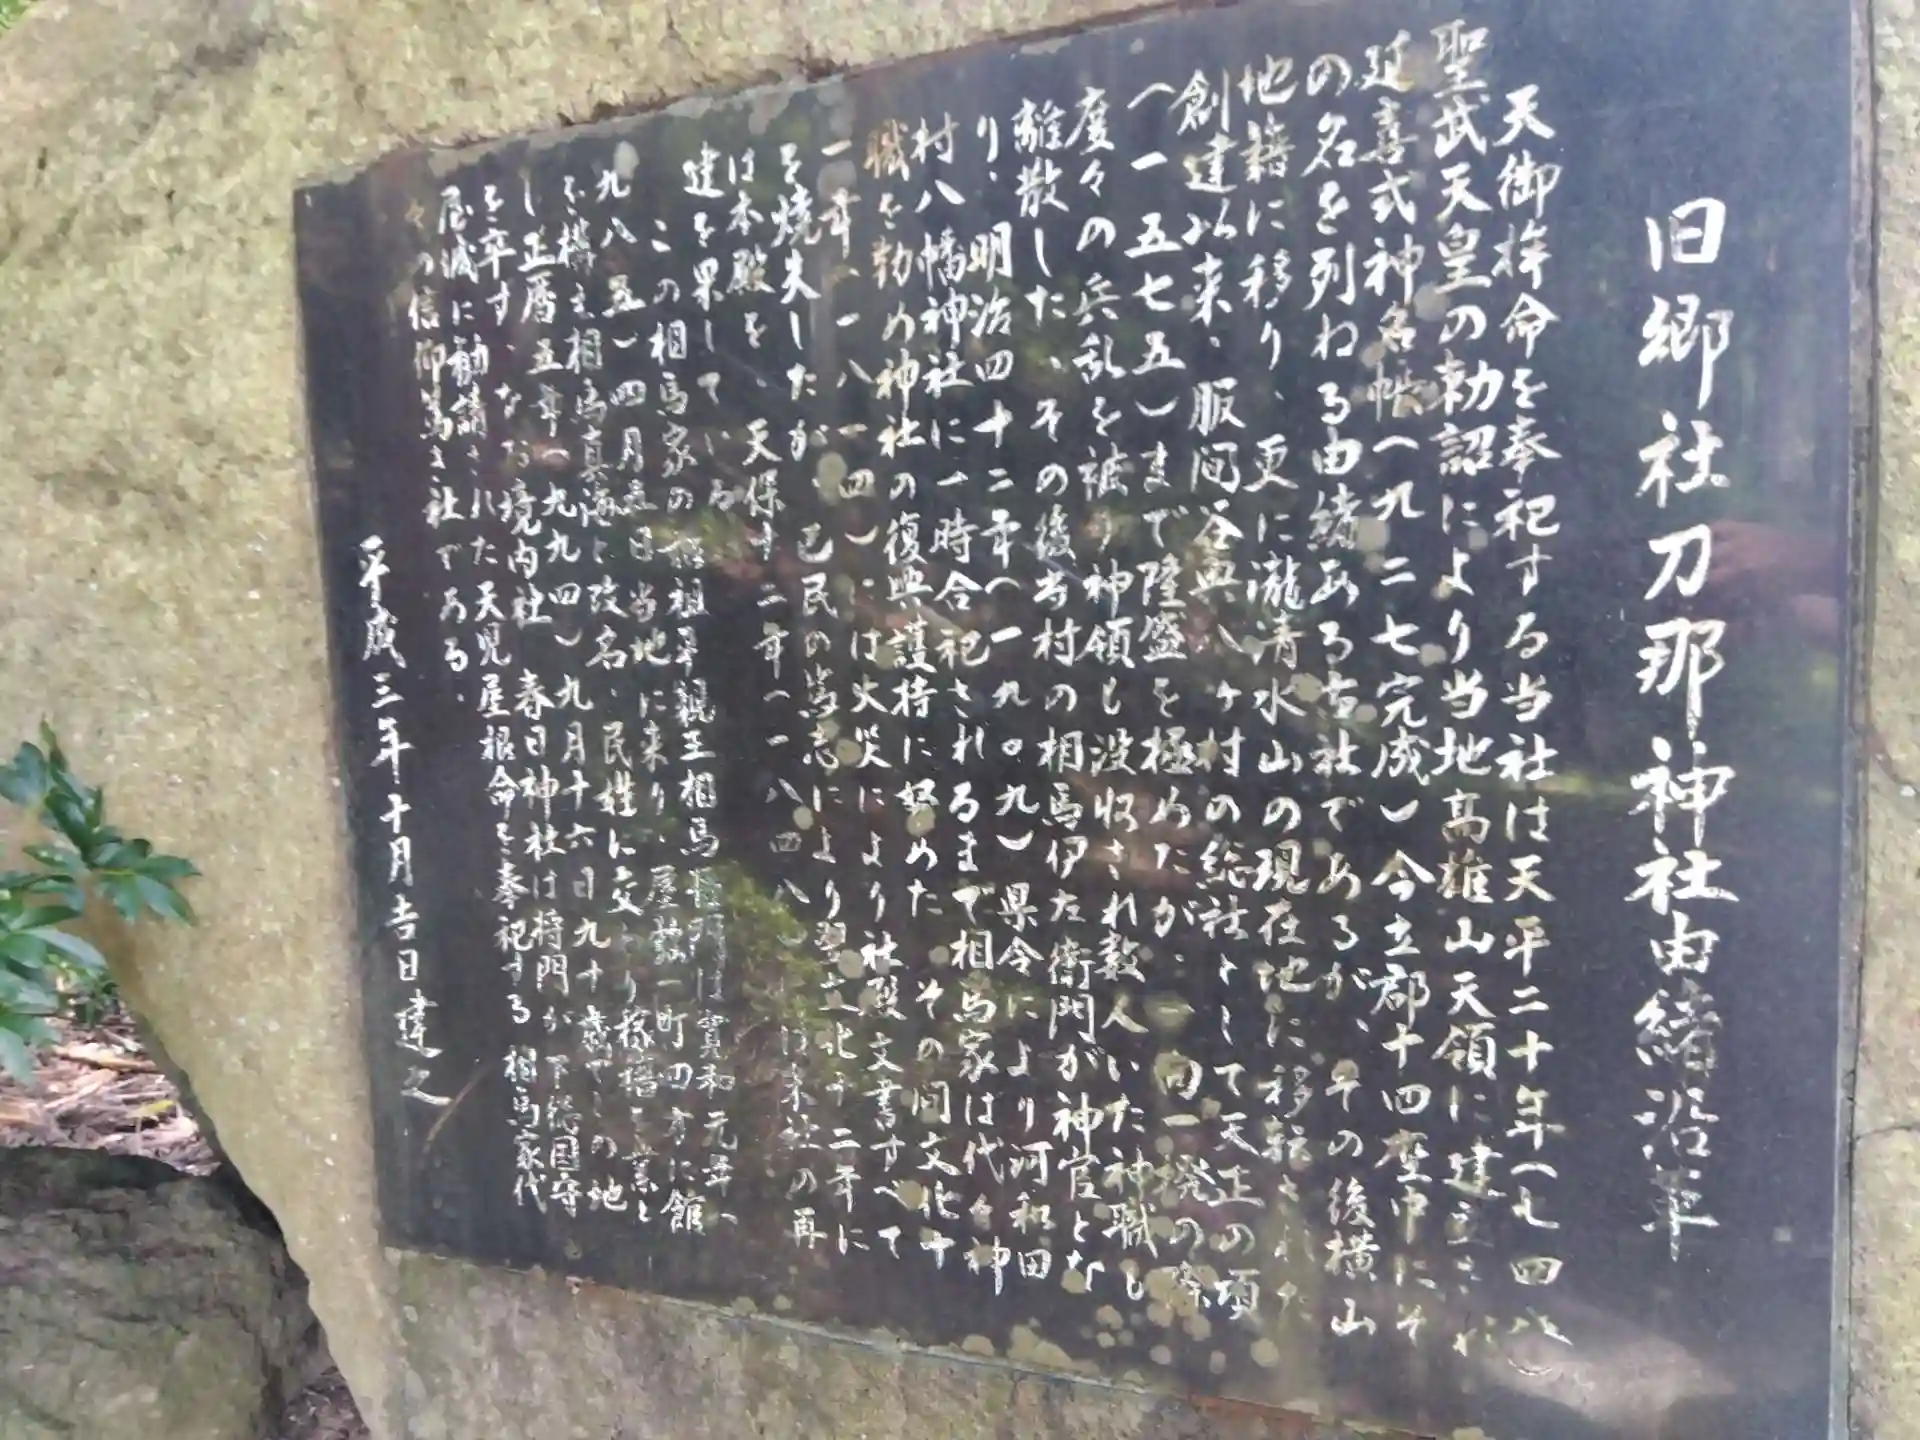 旧郷社刀那神社由緒沿革
天御捧命を奉祀する当社は天平二十年(七四八)
聖武天皇の勅詔により当地高雄山天領に建立され
延喜式神名帳(九二七完成)今立郡十四座中にそ
の名を列ねる由緒ある古社であるが、その後横山
地籍に移り、更に瀧清水山の現在地に移転された
創建以来、服間谷與八ヶ村の総社として天正の頃
(一五七五)まで隆盛を極めたが、一向一揆の際
度々の兵乱を被り神領も没収され数人いた神職も
離散した、その後当村の相馬伊左衛門が神官とな
り、明治四十二年(一九〇九)県令により河和田
村八幡神社に一時合祀されるまで相馬家は代々神
職を勤め神社の復興護持に努めた その間文化十
一年(一八一四)には火災により社殿文書すべて
を焼失したが、氏民の篤志により翌文化十二年に
は本殿を、天保十二年(一八四八)には末社の再
建を果している
この相馬家の祖平親王相馬将門は寛和元年(
九八五)四月五日当地に来り、屋敷一町四方に館
を構え相馬真海と改名、民姓に交り稼穡を業と
し正暦五年(九九四)九月十六日九十歳でこの地
を卒す、なお境内社 春日神社は将門が下総国守
屋城に勧請された天児屋根命を奉祀する 相馬家代
々の信仰篤き社である、
平成三年十月吉日建之